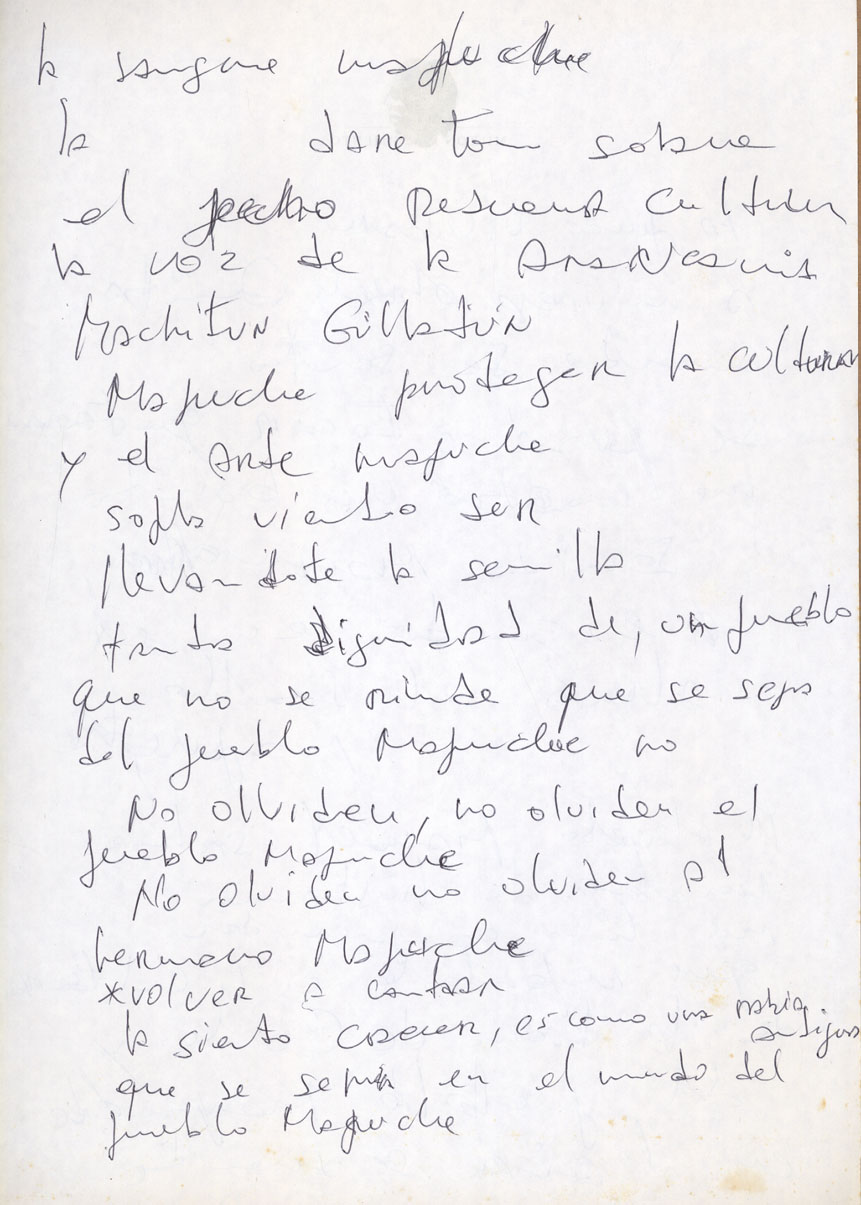 la sangre mapuche
la
sobre
el pecho
la voz de la Araucania
Machitun Gillatún
Mapuche protegen la cultura
y el arte mapuche
sopla viento ser
llevandote la semilla
tanta dignidad de, un pueblo
que no se rinde que se sepa
del pueblo Mapuche no
No olviden, no olviden el
pueblo Mapuche
No olviden no olviden al
hermano Mapuche
*volver a cantar
la siento crecer, es como una rabia
antigua
que se en el mundo del
pueblo Mapuche